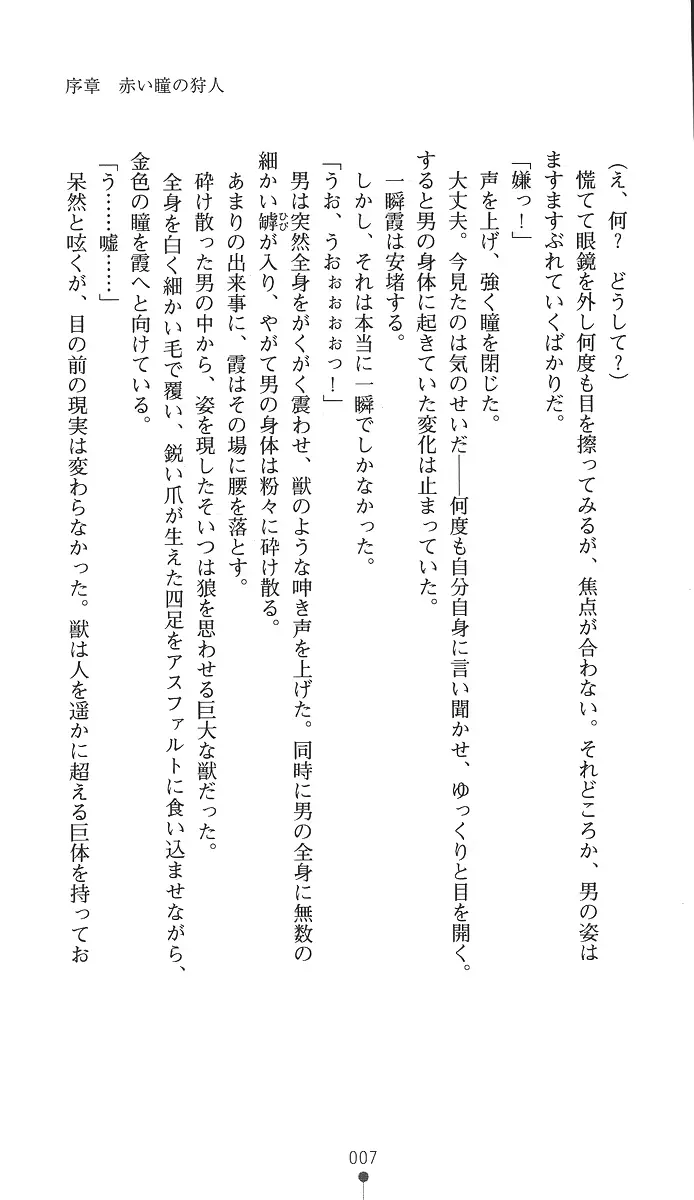 序章　赤い瞳の狩人
（え、何？　どうして？）
　慌てて眼鏡を外し何度も目を擦ってみるが、焦点が合わない。それどころか、男の姿は
ますますぶれていくばかりだ。
「嫌っ！」
　声を上げ、強く瞳を閉じた。
　大丈夫。今見たのは気のせいだ――何度も自分自身に言い聞かせ、ゆっくりと目を開く。
すると男の身体に起きていた変化は止まっていた。
　一瞬霞は安堵する。
　しかし、それは本当に一瞬でしかなかった。
「うお、うおぉぉぉぉっ！」
　男は突然全身をがくがく震わせ、獣のような呻き声を上げた。同時に男の全身に無数の
細かい罅ひびが入り、やがて男の身体は粉々に砕け散る。
　あまりの出来事に、霞はその場に腰を落とす。
　砕け散った男の中から、姿を現したそいつは狼を思わせる巨大な獣だった。
　全身を白く細かい毛で覆い、鋭い爪が生えた四足をアスファルトに食い込ませながら、
金色の瞳を霞へと向けている。
「う……嘘……」
　呆然と呟くが、目の前の現実は変わらなかった。獣は人を遥かに超える巨体を持ってお
007